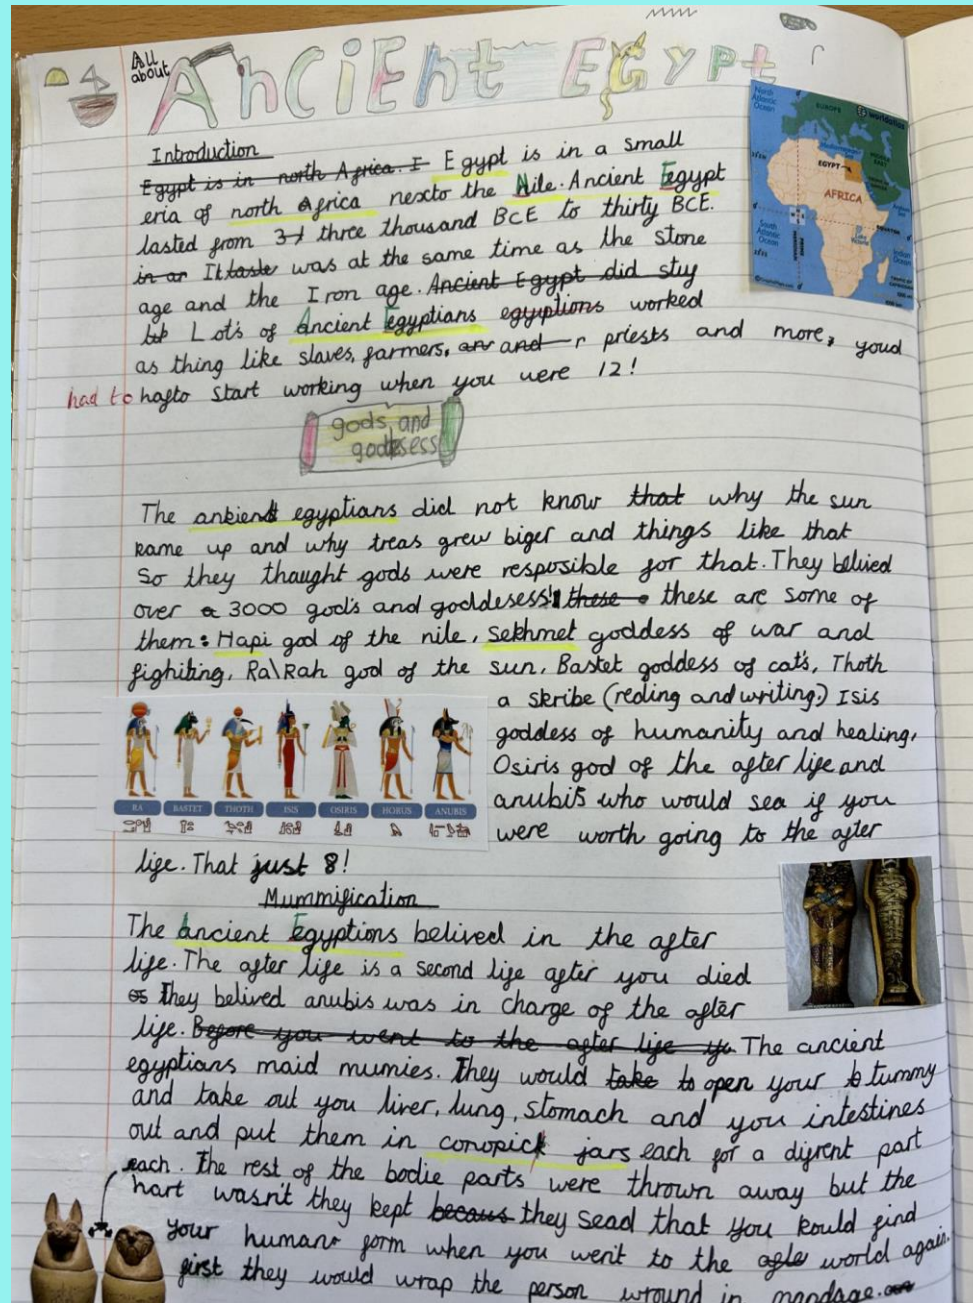 All about
AnCiEnt EGYPt
Introduction
Egypt is in north Africa. I Egypt is in a small
eria of north africa nexto the Nile. Ancient Egypt
lasted from 3 three thousand BCE to thirty BCE.
in ar It taste was at the same time as the stone
age and the Iron age. Ancient Egypt did stuy
Lot's of Ancient Egyptians egyiptions worked
as thing like slaves, farmers, and r priests and more, youd
had to hafto start working when you were 12!
gods and
goddesess
The ankient egyptians did not know that why the sun
kame up and why treas grew biger and things like that
So they thought gods were resposible for that. They belived
over a 3000 god's and goddesess! these these are some of
them: Hapi god of the nile, Sekhmet goddess of war and
fighiting, Ra\Rah god of the sun, Bastet goddess of cat's, Thoth
a skribe (reding and writing,) Isis
goddess of humanity and healing,
Osiris god of the after life and
anubis who would sea if you
were worth going to the after
life. That just 8!
RA BASTET THOTH ISIS OSIRIS HORUS ANUBIS
Mummification
The Ancient Egyptions belived in the after
life. The after life is a second life after you died
They belived anubis was in charge of the after
life. Before you went to the after life yo The ancient
egyptians maid mumies. They would take to open your tummy
and take out you liver, lung, stomach and you intestines
out and put them in conopick jars each for a difrent part
each. The rest of the bodie parts were thrown away but the
hart wasn't they kept becaus they sead that you kould find
your human form when you went to the afte world again.
first they would wrap the person wround in mandage.
North Atlantic Ocean
EUROPE
worldatlas
EGYPT
MIDDLE EAST
AFRICA
EQUATOR
South Atlantic Ocean
Indian Ocean